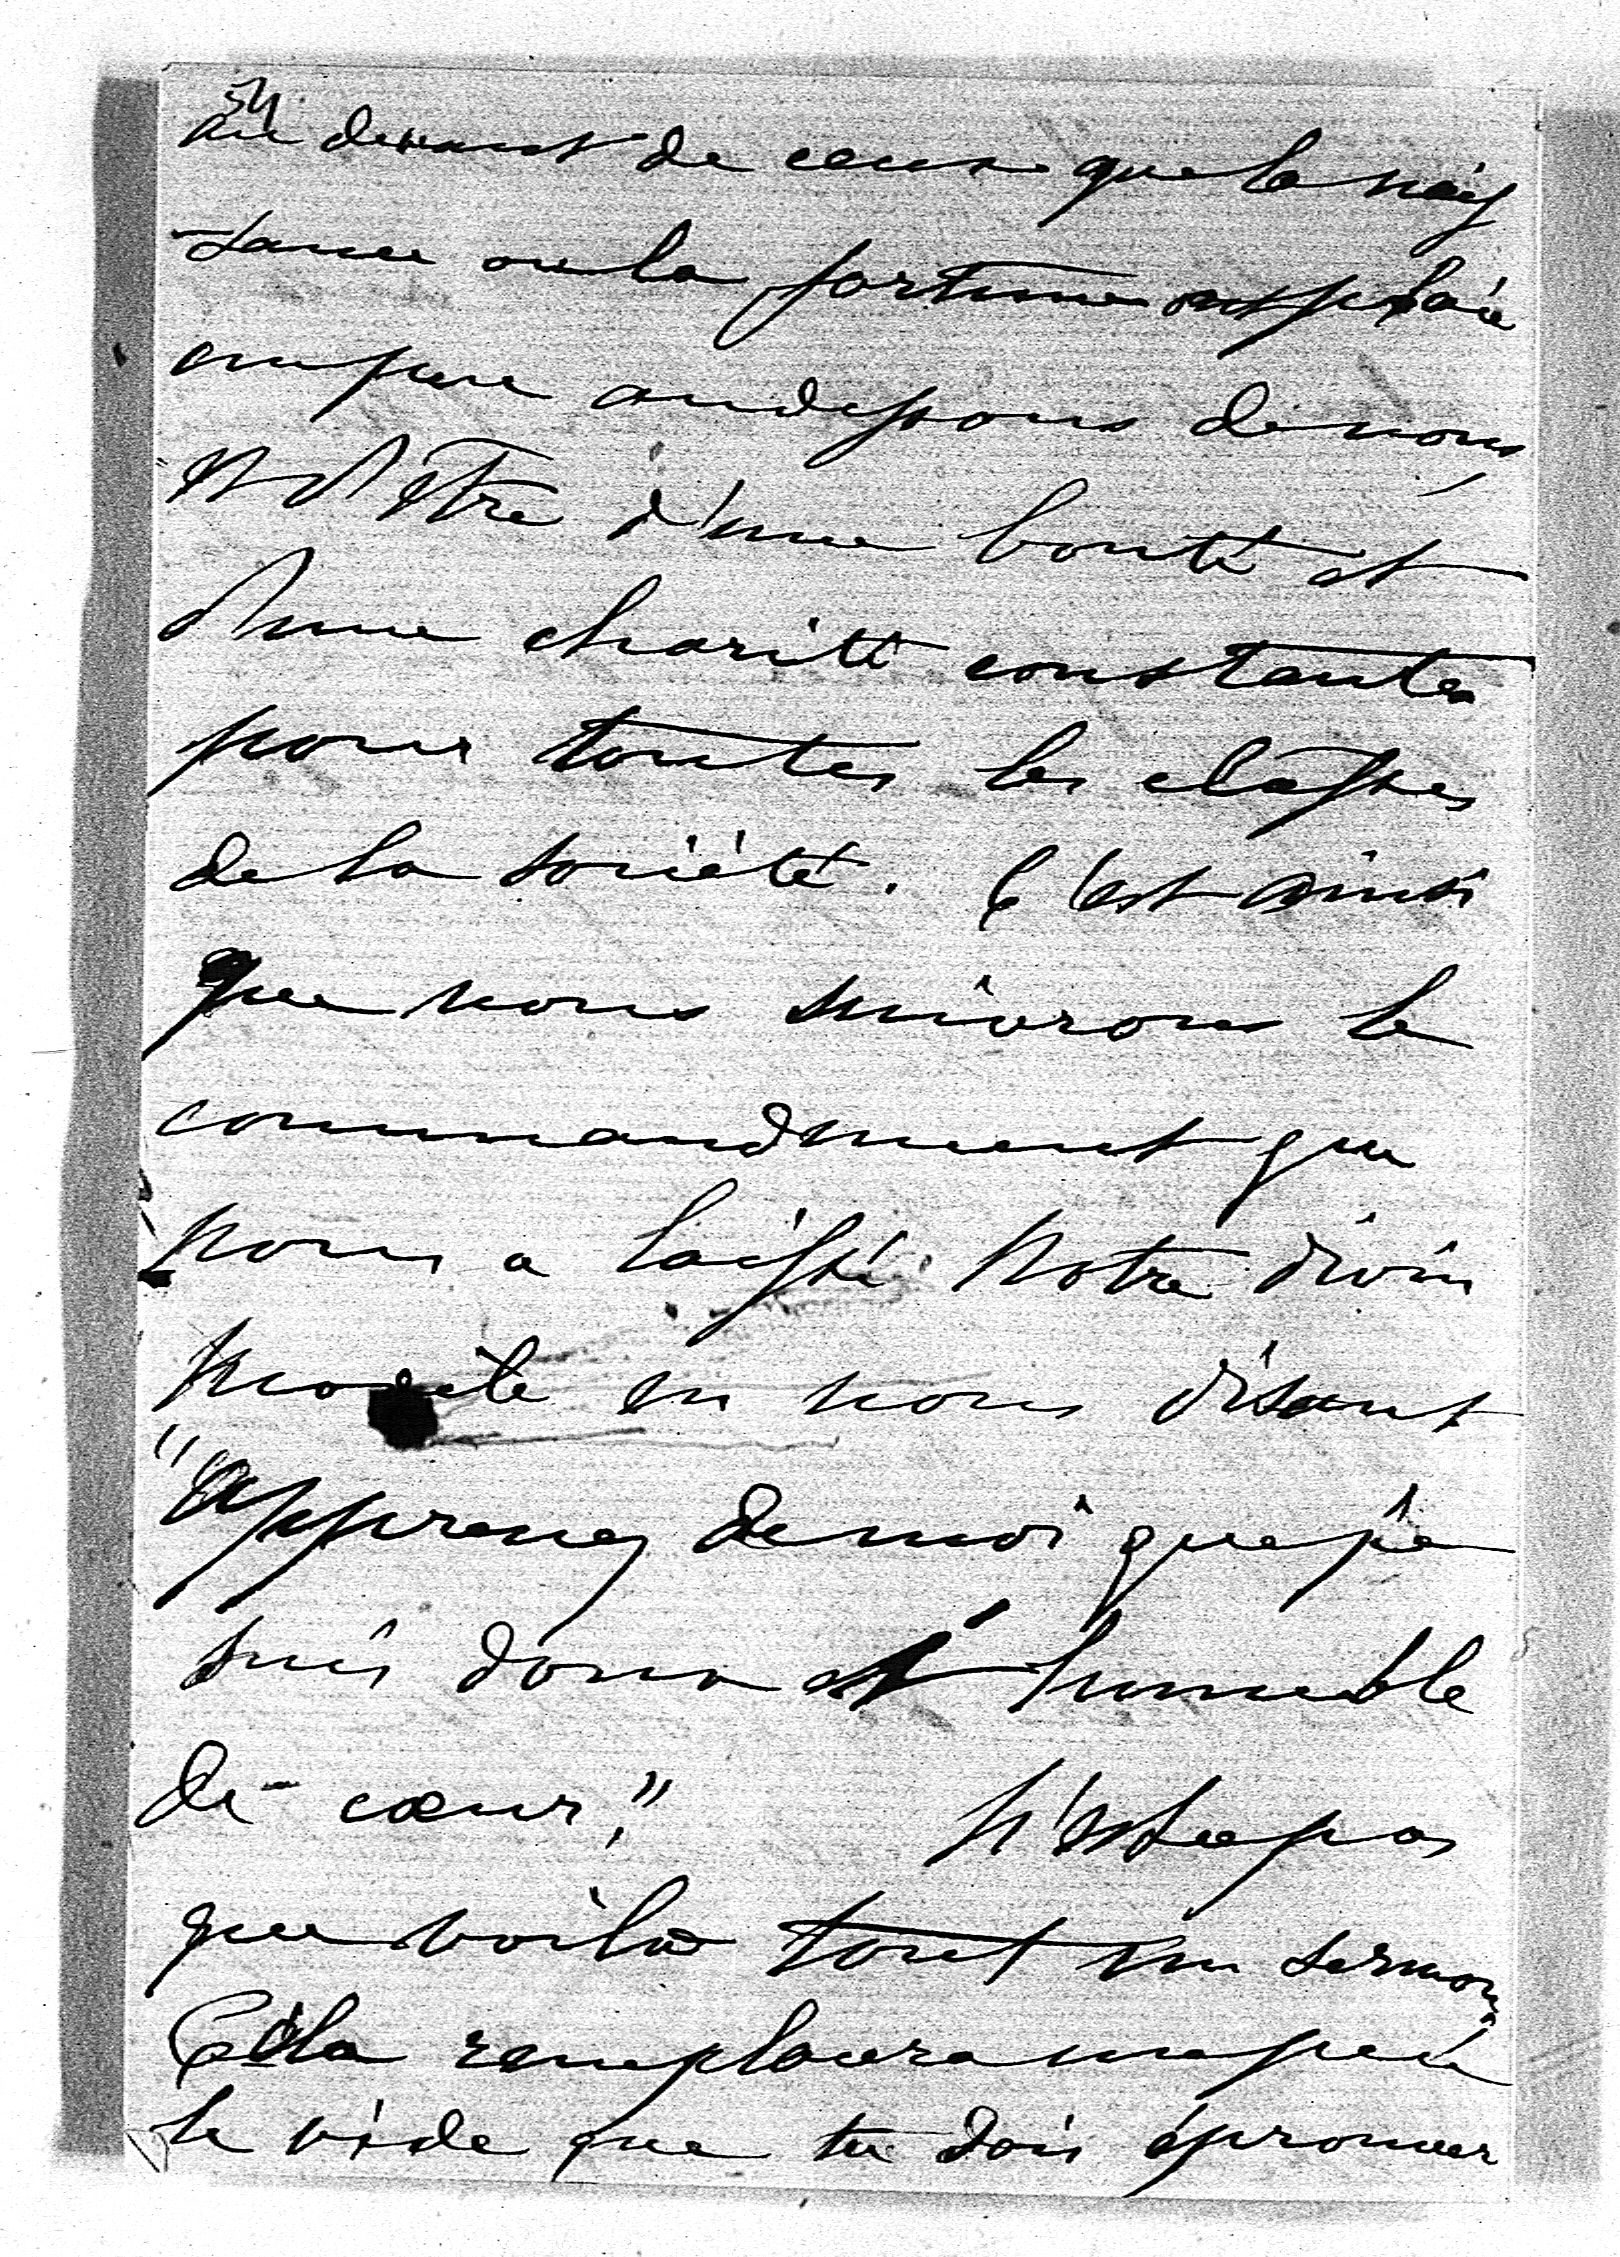 54
au devant de ceux que la nais
sance ou la fortune ont placé
un peu au dessous de nous,
et d'être d'une bonté et
d'une charité constantes
pour toutes les classes
de la société. C'est ainsi
que nous suivrons le
commandment que
nous a laissé Notre divin
modèle en nous disant
"Apprenez de moi que je
suis doux et humble
de cœur,"     N'est ce pas
que voilà tout un sermon,
Cela remplacera un peu
le vide que tu dois éprouver